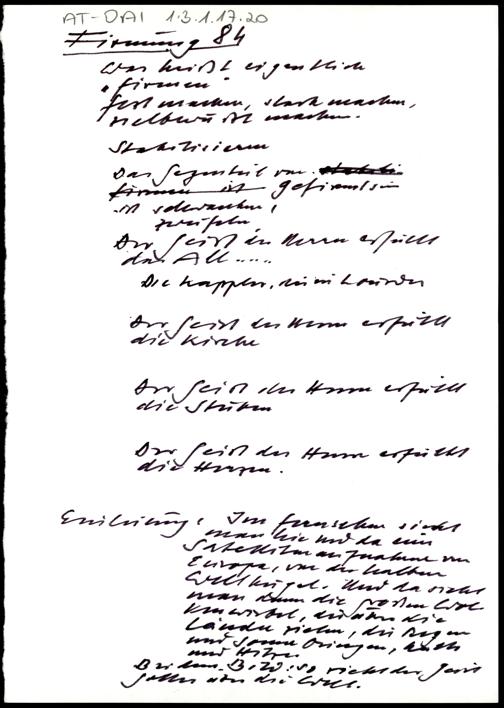 AT-DAI 1.3.1.17.20
Firmung 84
Was heißt eigentlich
"firmen"
fest machen, stark machen,
selbstbewußt machen.
Stabilisieren
Das Gegenteil von
firmen ist gefirmt sein
ist schwanken,
zweifeln
Der Geist des Herrn erfüllt
das All .....
Die Kappler, in Lourdes
Der Geist des Herrn erfüllt
die Kirche
Der Geist des Herrn erfüllt
die Stuben
Der Geist des Herrn erfüllt
die Herzen.
Einleitung: Im Fernsehen sieht
man hie und da eine
Satellitenaufnahme von
Europa, von der halben
Weltkugel. Und da sieht
man dann die großen Wol
kenwirbel, die über die
Länder ziehn, die Regen
und Sonne bringen, Kälte
und Hitze.
Bei dem Bild: so zieht der Geist
Gottes über die Welt.